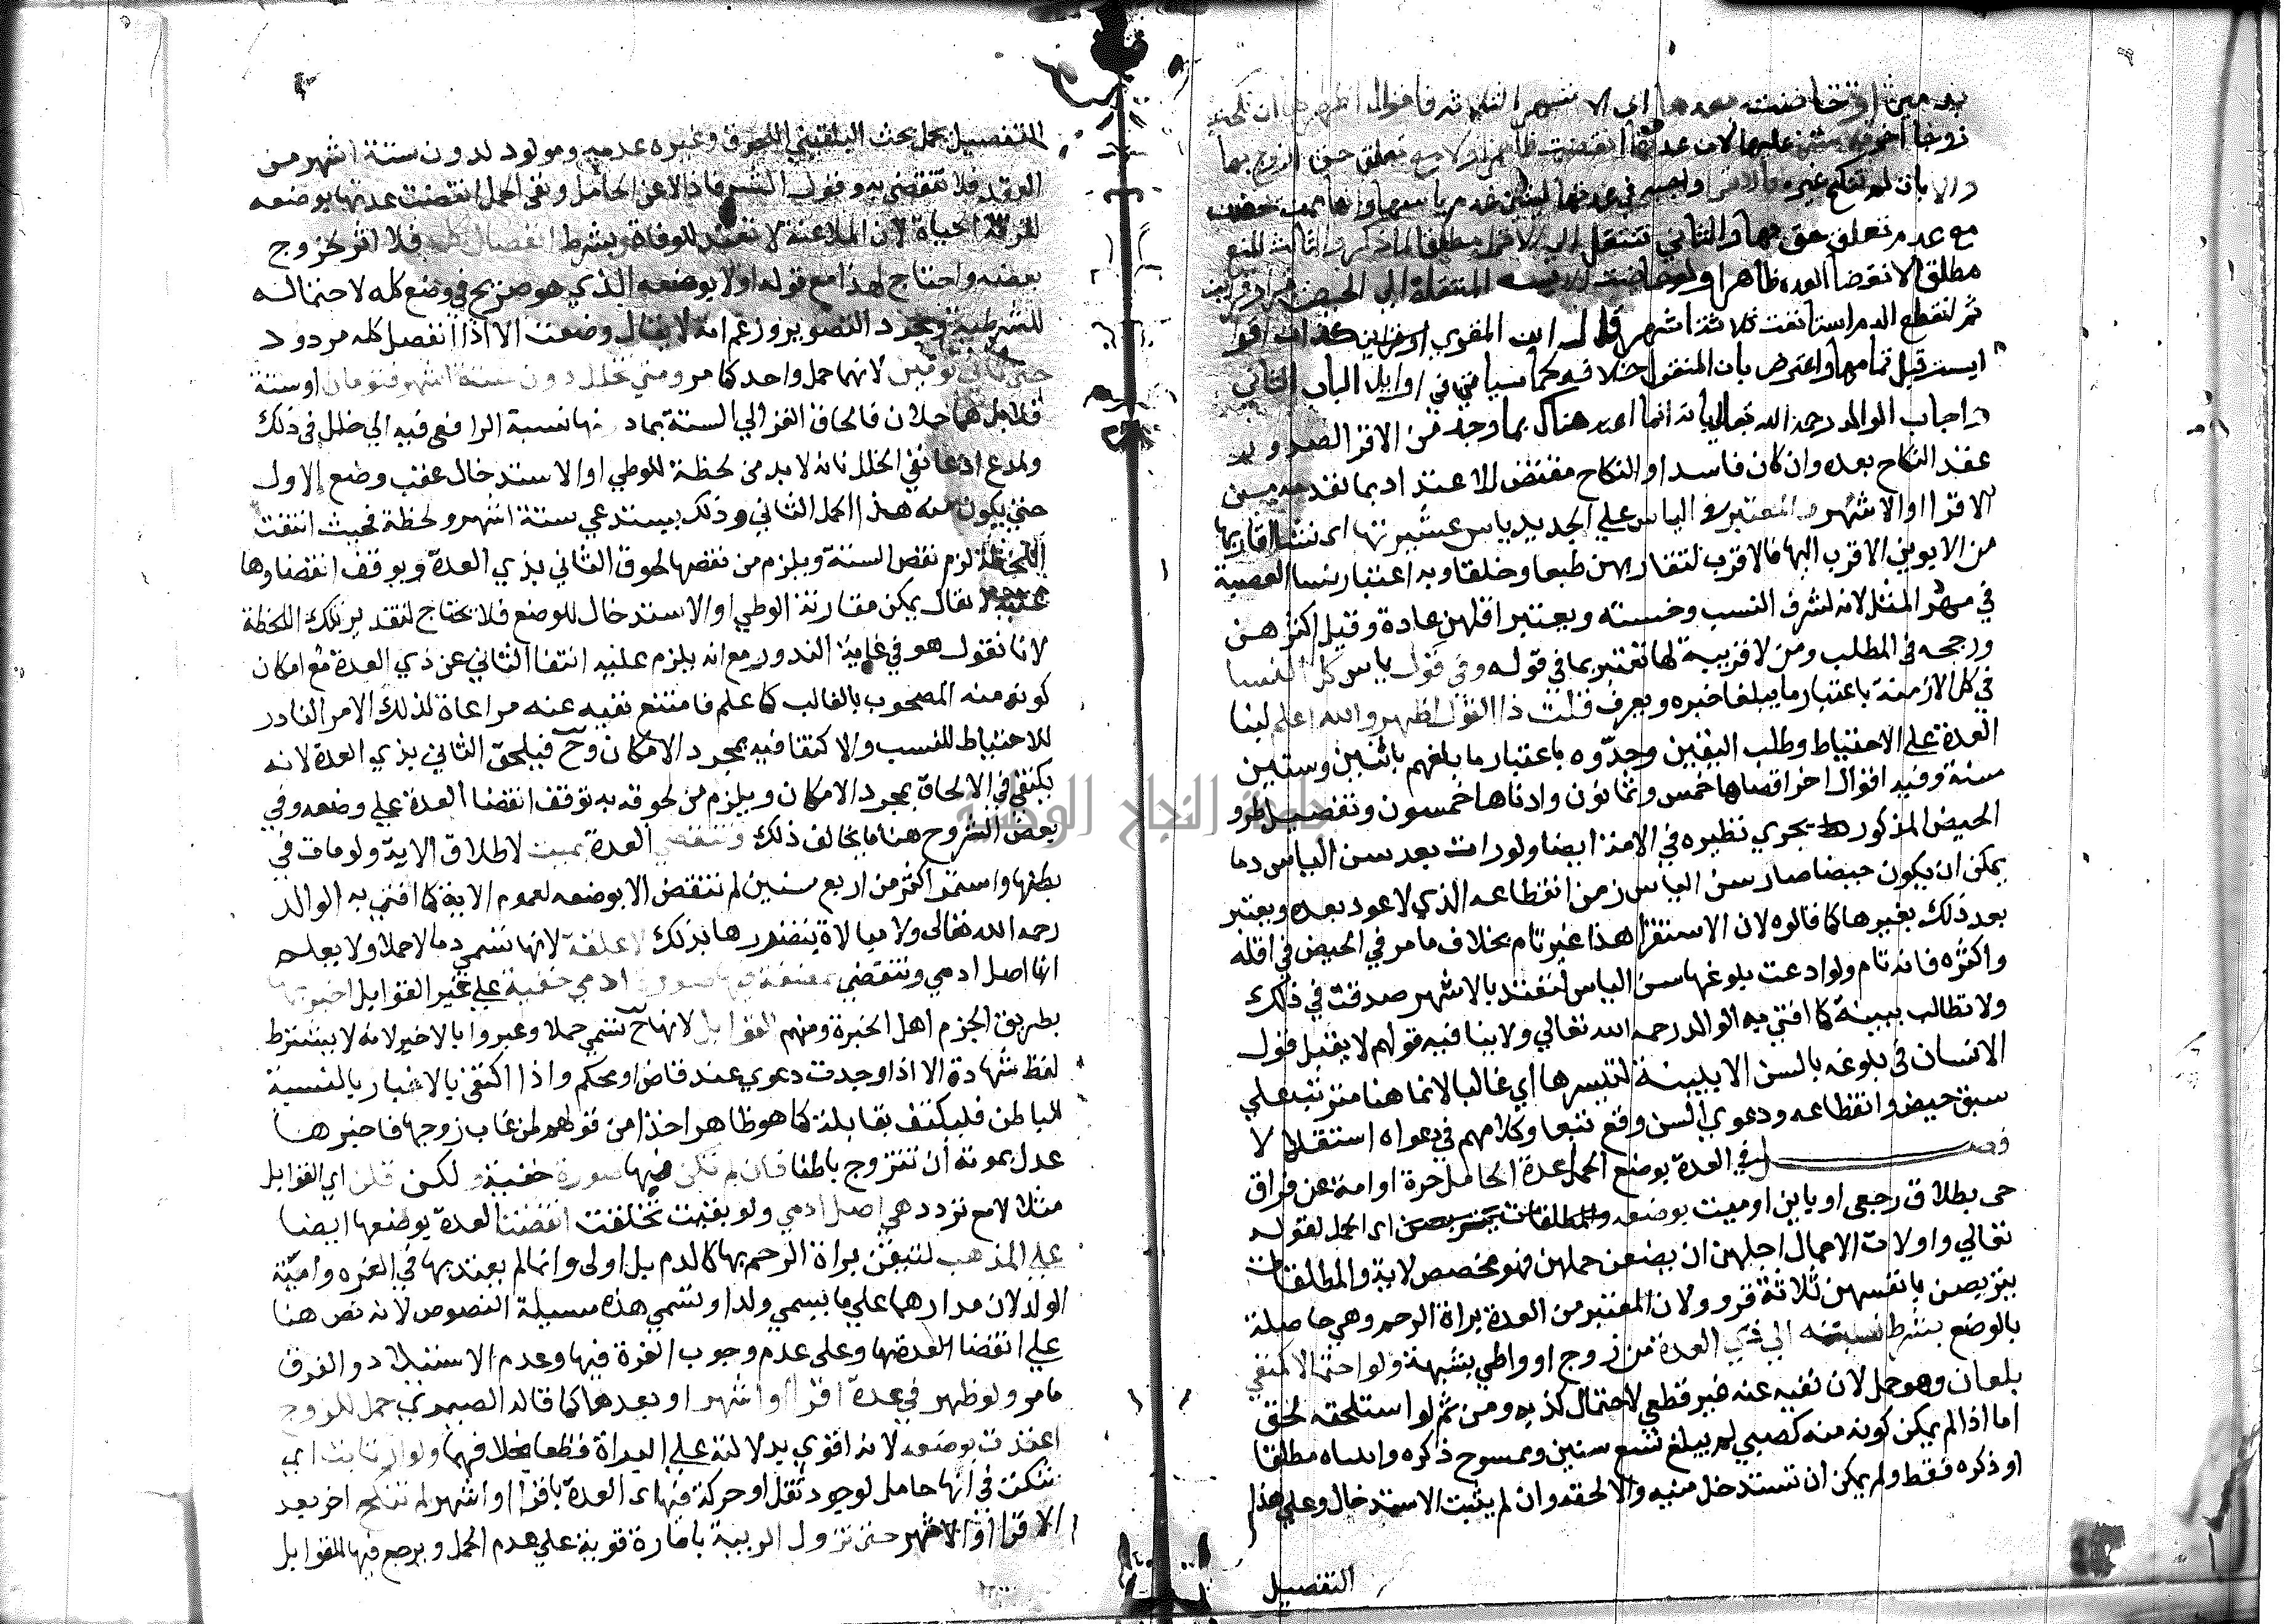 زوجا اخر فلا شئ عليها لان عدتها انقضت ظاهرا ولا ريبة تعلق حق الزوج بها
والا بان لم تنكح غيره فالاقرا واجبة في عدتها لتبين عدم ياسها وانها ممن يحضن
مع عدم تعلق حق بها والثاني تنتقل الي الاقرا مطلقا لما ذكر والثالث المنع
مطلقا لانقضا العدة ظاهرا ولو حاضت الايسة المنتقلة الي الحيض
ثم انقطع الدم استانفت ثلاثة اشهر قال ابن المقري او قراين كذات اقرا
ايست قبل تمامها واعترض بان المنقول خلافه كما سياتي في اوايل الباب الثاني
واجاب الوالد رحمه الله تعالي بانه انما اعتد هناك بما وجد من الاقرا لصدور
عقد النكاح بعده وان كان فاسدا والنكاح مقتض للاعتداد بما تقدمه من
الاقرا او الاشهر والمعتبر في الياس علي الجديد ياس عشيرتها اي نسا اقاربها
من الابوين الاقرب اليها فالاقرب لتقاربهن طبعا وخلقا وبه اعتبار نسا العصبة
في مهر المثل لانه لشرف النسب وخسته ويعتبر اقلهن عادة وقيل اكثرهن
ورجحه في المطلب ومن لا قريبة لها تعتبر بما في قوله وفي قول ياس كل النسا
في كل الازمنة باعتبار ما يبلغنا خبره ويعرف قلت ذا القول اظهر والله اعلم لبنا
العدة علي الاحتياط وطلب اليقين وحدّوه باعتبار ما بلغهم باثنين وستين
سنة وفيه اقوال اخر اقصاها خمس وثمانون وادناها خمسون وتفصيل طرو
الحيض المذكور يجري نظيره في الامة ايضا ولو رات بعد سن الياس دما
يمكن ان يكون حيضا صار سن الياس زمن انقطاعه الذي لا عود بعده ويعتبر
بعد ذلك بغيرها كما قالوه لان الاستقرا هذا غير تام بخلاف ما مر في الحيض في اقله
واكثره فانه تام ولو ادعت بلوغها سن الياس لتعتد بالاشهر صدقت في ذلك
ولا تطالب ببينة كما افتي به الوالد رحمه الله تعالي ولا ينافيه قولهم لا يقبل قول
الانسان في بلوغه بالسن الا ببينة لتيسرها اي غالبا لانما هنا مترتب علي
سبق حيض وانقطاعه ودعوي السن وقع تبعا وكلامهم في دعواه استقلالا
فصـــل في العدة بوضع الحمل عدة الحامل حرة او امة عن فراق
حي بطلاق رجعي او باين او ميت بوضعه والمطلقات يتربصن اي الحمل لقوله
تعالي واولات الاحمال اجلهن ان يضعن حملهن فهو مخصص لاية والمطلقات
يتربصن بانفسهن ثلاثة قرو ولان المعتبر من العدة براة الرحم وهي حاصلة
بالوضع بشرط نسبته الي ذي العدة من زوج او واطي بشبهة ولو احتمالا كمنفي
بلعان وهو حمل لان نفيه عنه غير قطعي لاحتمال كذبه ومن ثم لو استلحقه لحق
اما اذا لم يمكن كونه منه كصبي لم يبلغ تسع سنين وممسوح ذكره وانثياه مطلقا
او ذكره فقط ولم يمكن ان تستدخل منيه والا لحقه وان لم يثبت الاستدخال وعلي هذا
التفصيل
التفصيل يحمل بحث البلقيني اللحوق وغيره عدمه ومولود لدون ستة اشهر من
العقد فلا تنقضي به وقول الشرقاذ لاعن الحامل ونفي الحمل انقضت عدتها بوضعه
لفرقة الحياة لان الملاعنة لا تعتد للوفاة وبشرط انفصال كله فلا اثر لخروج
بعضه واحتاج لهذا مع قوله اولا بوضعه الذي هو صريح في وضع كله لاحتماله
للشرطية ومجرد التصوير وزعم انه لا يقال وضعت الا اذا انفصل كله مردود
حتي ثاني تومين لانهما حمل واحد كما مر ومتي تخلل دون ستة اشهر فتومان او ستة
فلا بل هما حملان فالحاق الغزالي الستة بما دونها نسبة الرافعي فيه الي خلل في ذلك
ولمدع ادعا نفي الخلل بانه لا بد من لحظة للوطي او الاستدخال عقب وضع الاول
حتي يكون منه هذا الحمل الثاني وذلك يستدعي ستة اشهر ولحظة فحيث انتفت
اللحظة لزم نقص الستة ويلزم من نقصها لحوق الثاني بذي العدة وتوقف انقضاوها
عليه لا يقال يمكن مقارنة الوطي او الاستدخال للوضع فلا يحتاج لتقدير تلك اللحظة
لانا نقول هو في غاية الندور مع انه يلزم عليه انتفا الثاني عن ذي العدة مع امكان
كونه منه المصحوب بالغالب كما علم فامتنع نفيه عنه مراعاة لذلك الامر النادر
للاحتياط للنسب والاكتفا فيه بمجرد الامكان وح فيلحق الثاني بذي العدة لانه
يكتفي في الالحاق بمجرد الامكان ويلزم من لحوقه به توقف انقضا العدة علي وضعه وفي
بعض الشروح هنا ما يخالف ذلك وتنقضي العدة بميت لاطلاق الاية ولو مات في
بطنها واستمر اكثر من اربع سنين لم تنقض الا بوضعه لعموم الاية كما افتي به الوالد
رحمه الله تعالي ولا مبالاة بتضررها بذلك لا علقة لانها تسمي دما لا حملا ولا يعلم
انها اصل ادمي وتنقضي بمضغة فيها صورة ادمي خفية علي غير القوابل اخبر بها
بطريق الجزم اهل الخبرة ومنهم القوابل لانها ح تسمي حملا وعبروا بالاخبر لانه لا يشترط
لفظ شهادة الا اذا وجدت دعوي عند قاض او محكم واذا اكتفي بالاخبار بالنسبة
للباطن فليكتف بقابلة كما هو ظاهر اخذا من قولهم لمن غاب زوجها فاخبرها
عدل بموته ان تتزوج باطنا فان لم تكن فيها صورة خفية ولكن قلن اي القوابل
مثلا لا مع تردد هي اصل ادمي ولو بقيت تخلقت انقضت العدة بوضعها ايضا
علي المذهب لتيقن براة الرحم بها كالدم بل اولي وانما لم يعتد بها في الغره وامية
الولد لان مدارهما علي ما يسمي ولدا وتسمي هذه مسيلة النصوص لانه نص هنا
علي انقضا العدة بها وعلي عدم وجوب الغرة فيها وعدم الاستيلاد والفرق
ما مر ولو ظهر في عدة اقرا او اشهر او بعدها كما قاله الصيمري حمل للزوج
اعتدت بوضعه لانه اقوي بدلالته علي البراة قطعا بخلافهما ولو ارتابت اي
شكت في انها حامل لوجود ثقل او حركة فيها اي العدة باقرا او اشهر لم تنكح اخر بعد
الاقرا او الاشهر حتي تزول الريبة بامارة قوية علي عدم الحمل ويرجع فيها للقوابل
جامعة النجاح الوطنية